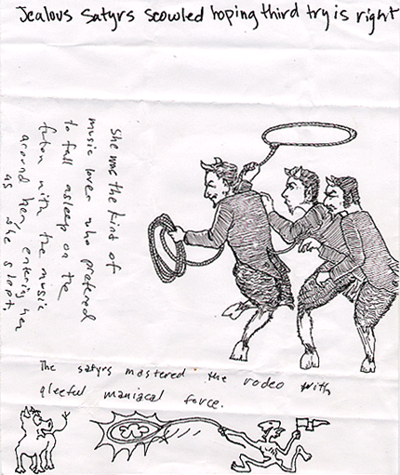 Jealous satyrs scowled hoping third try is right
She was the kind of
music lover who prefered
to fall asleep on the
futon with the music
around her, entering her
as she slept.
The satyrs mastered the rodeo with
gleeful maniacal force.